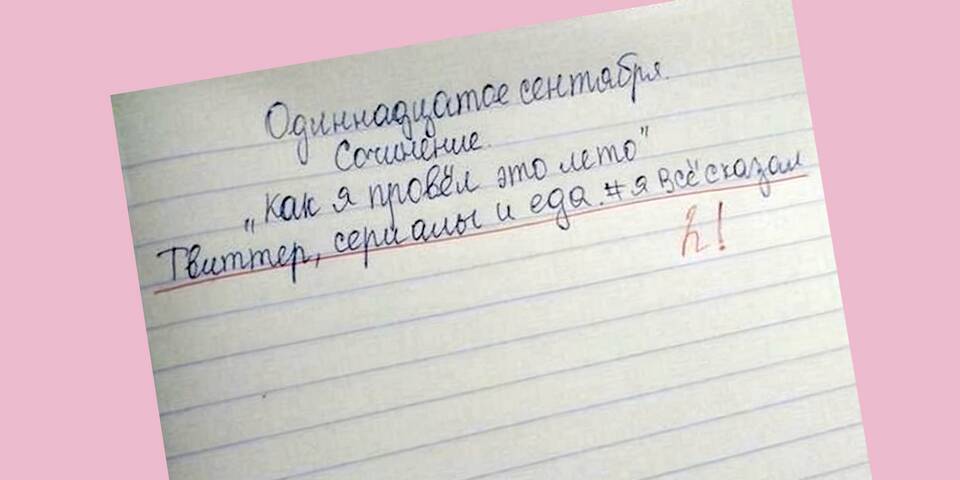 Одиннадцатое сентября.
Сочинение.
„Как я провёл это лето"
Твиттер, сериалы и еда. #я всё сказал
2!